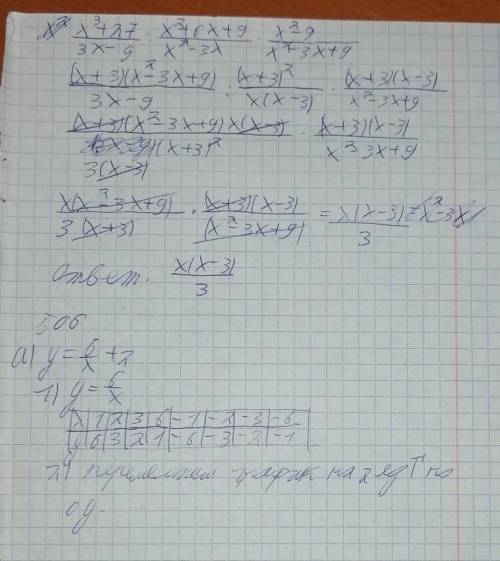 x³+27 / 3x-9 : x²+6x+9 / x²-3x · x²-9 / x²-3x+9
(x+3)(x²-3x+9) / 3x-9 : (x+3)² / x(x-3) · (x+3)(x-3) / x²-3x+9
(x+3)(x²-3x+9)x(x-3) / (x+3)² · (x+3)(x-3) / x²-3x+9
3(x-3)
x(x²-3x+9) / 3(x+3) · (x+3)(x-3) / (x²-3x+9) = x(x-3) / 3
Ответ: x(x-3) / 3
506
а) y = 6/x + 2
1) y = 6/x
x | 1 | 2 | 3 | 6 | -1 | -2 | -3 | -6
y | 6 | 3 | 2 | 1 | -6 | -3 | -2 | -1
2) график на 2 ед ↑ по
оу.